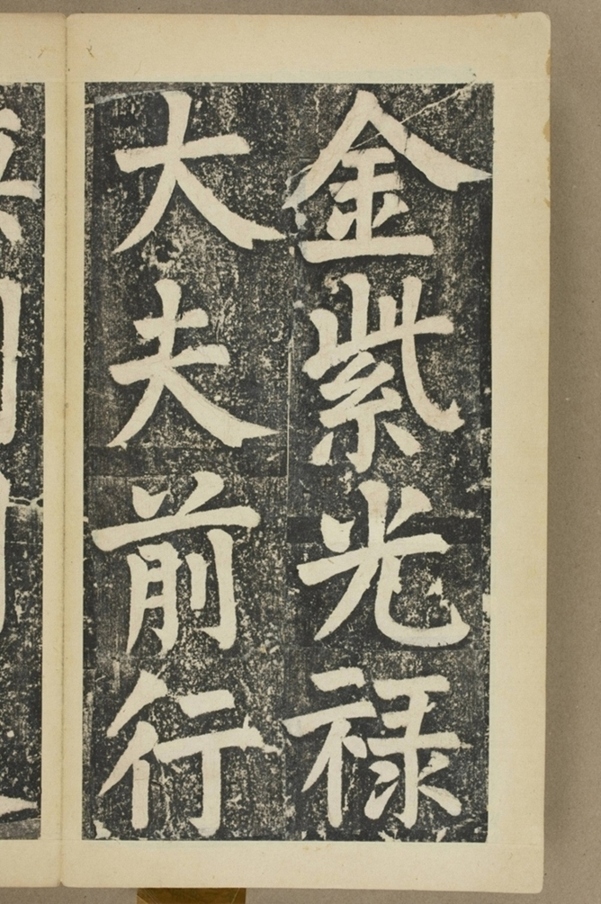 金紫光禄
大夫前行